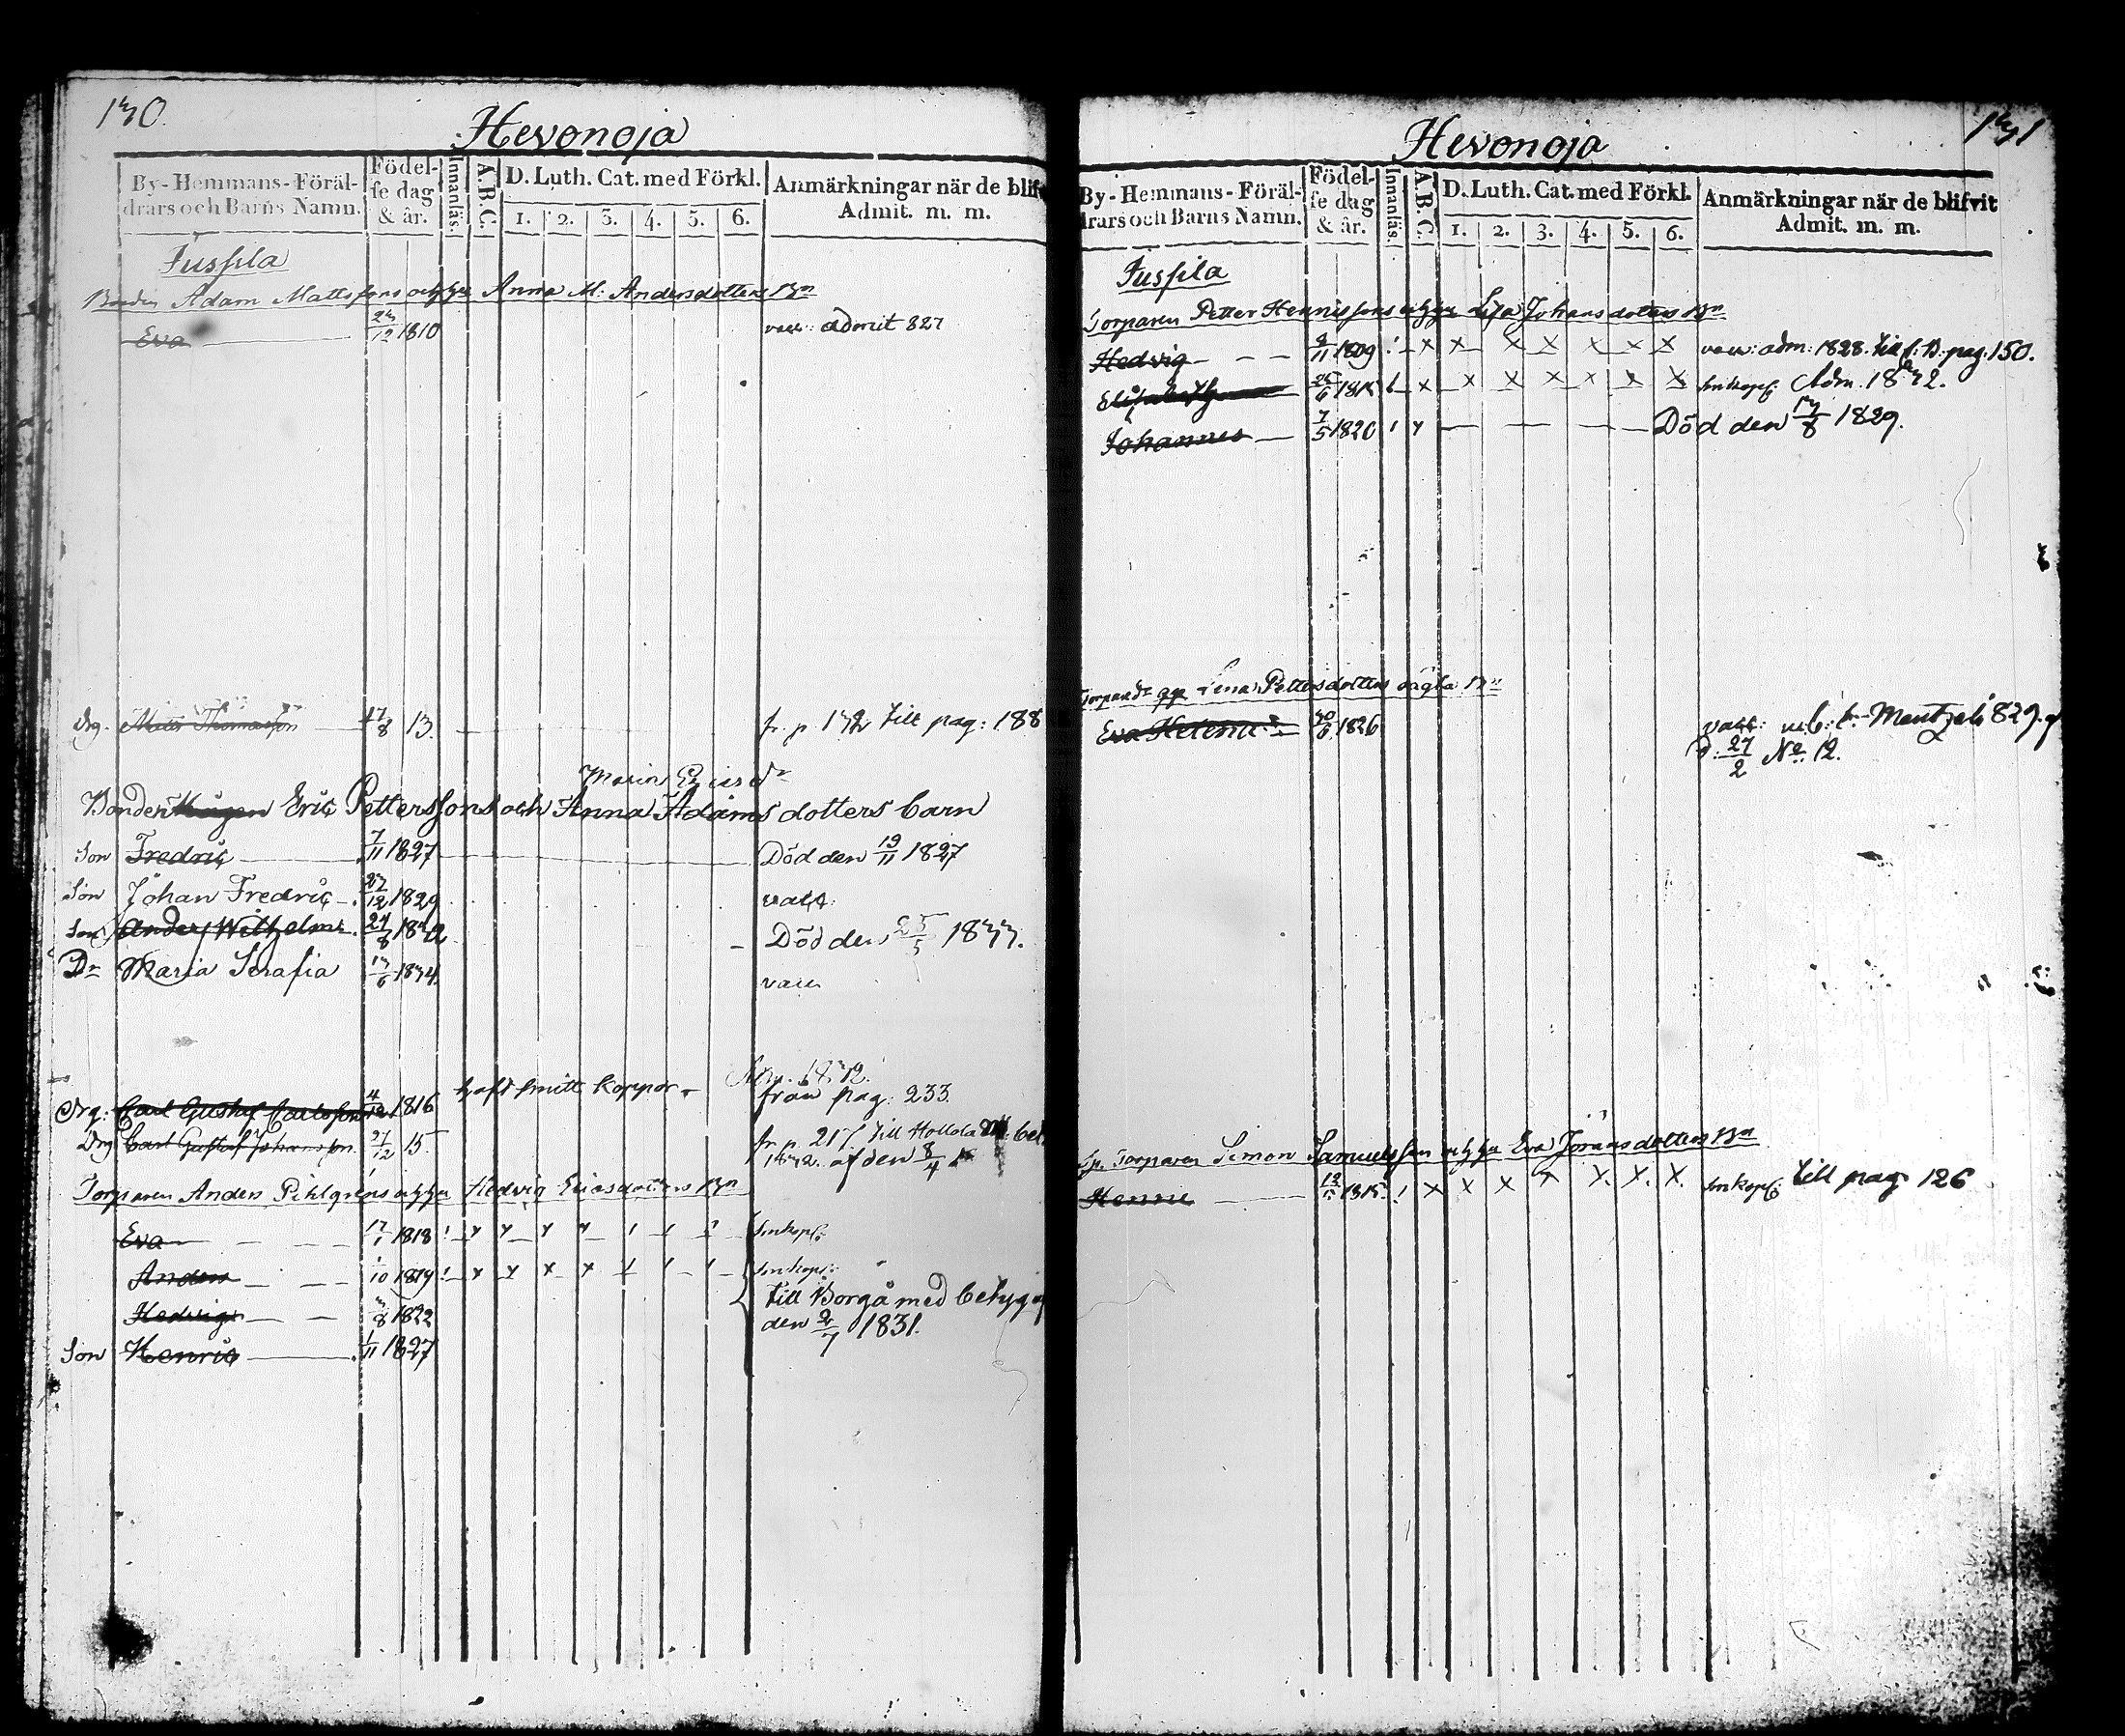 130.
Hevonoja
By-Hemmans-Föräl-
drars och Barns Namn.
Födel-
se dag
& år.
Innanläs.
A. B. C.
D. Luth. Cat. med Förkl.
1. 2. 3. 4. 5. 6.
Anmärkningar när de blifv
Admit. m. m.
Jussila
Bonden Adam Mattssons och hu Anna M: Andersdotters Bn
Eva 23/12 1810 vacc: admit 827
Drg. Matts Thomasson 17/8 13. fr. p. 132 till pag: 188
Maria Ericsdr
Bonden Mågen Eric Petterssons och Anna Adams dotters barn
Son Fredric 7/11 1827 Död den 19/11 1827
Son Johan Fredric 27/12 1829 vact:
Son Anders Wilhelm 24/8 1832 Död den 25/5 1833.
Dr Maria Serafia 13/6 1834. vacc
haft smitt koppor Adm. 1832.
Drg: Carl Gustaf Carlsson 4/12 1816 från pag: 233.
Drg Carl Gustaf Johansson 27/12 15. fr. p. 217. till Hollola bet.
1832. af den 8/4
Torparen Anders Pihlgrens och hu Hedvig Ericsdotters Bn
Eva 17/1 1818 smkopp:
Anders 1/10 1819 smkopp:
Hedvig 3/8 1822 till Borgå med betyg af
den 2/7 1831.
Son Henric 1/11 1827
131
Hevonoja
By-Hemmans-Föräl-
drars och Barns Namn.
Födel-
se dag
& år.
Innanläs.
A. B. C.
D. Luth. Cat. med Förkl.
1. 2. 3. 4. 5. 6.
Anmärkningar när de blifvit
Admit. m. m.
Jussila
Torparen Petter Henrissons och hu Lisa Johansdotters Bn
Hedvig 9/11 1809 ! x x x x x x x vacc: adm: 1828. till pag: 150.
Elisabeth 26/6 1815 x x x x x x x smkopp: Adm. 1832.
Johannes 7/5 1820 Död den 13/8 1829.
Lena Pettersdotters oägta Bn
Eva Helena 30/6 1826 vact: Mentzels 829.
d. 27/2 No. 12.
Sp. Torparen Simon Samuelsson och hu Eva Jöransdotters Bn
Henric 1815 ! x x x x x. x. x. smkopp: till pag: 126